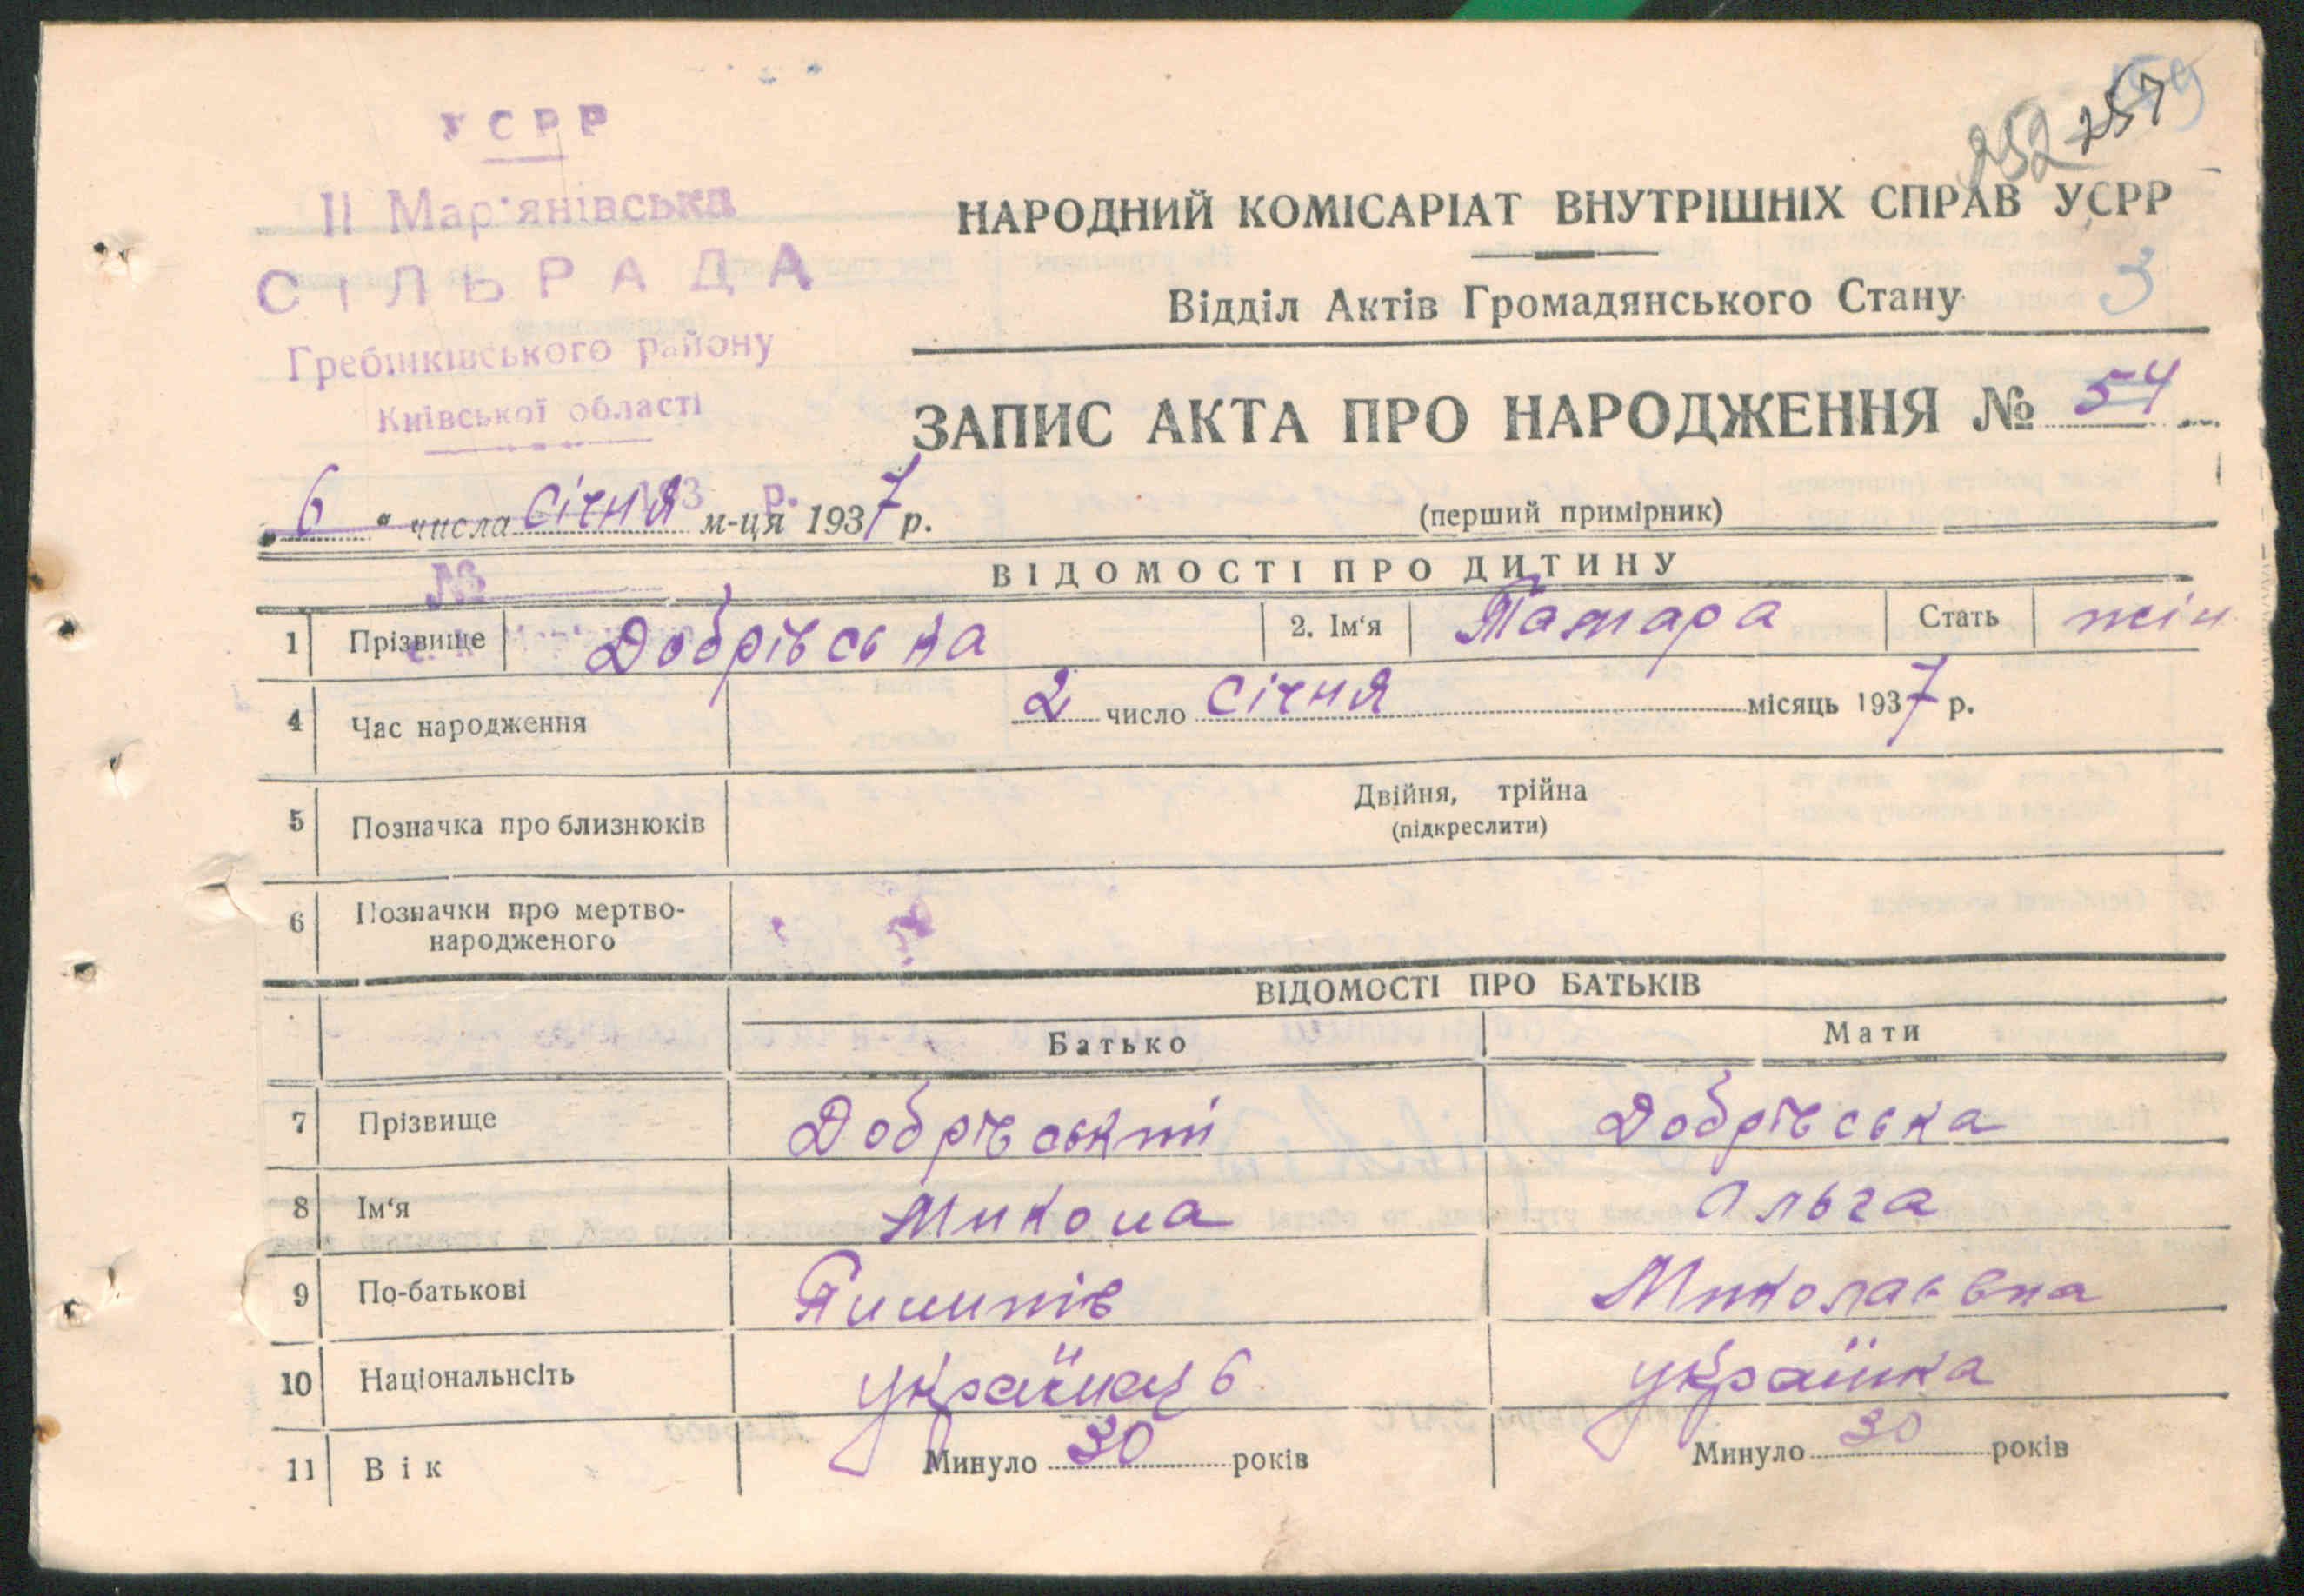 УСРР
ІІ Мар'янівська
СІЛЬРАДА
Гребінківського району
Київської області
193 р.
№
252 257
НАРОДНИЙ КОМІСАРІАТ ВНУТРІШНІХ СПРАВ УСРР
Відділ Актів Громадянського Стану
3
ЗАПИС АКТА ПРО НАРОДЖЕННЯ № 54
„ 6 “ числа січня м-ця 1937 р.
(перший примірник)
ВІДОМОСТІ ПРО ДИТИНУ
1 Прізвище Добрівська 2. Ім‘я Тамара Стать жін
4 Час народження 2 число січня місяць 1937 р.
5 Позначка про близнюків Двійня, трійна
(підкреслити)
6 Позначки про мертво-
народженого
ВІДОМОСТІ ПРО БАТЬКІВ
Батько Мати
7 Прізвище Добрівський Добрівська
8 Ім‘я Микола Ольга
9 По-батькові Пилипів Миколаєвна
10 Національнсіть українець українка
11 Вік Минуло 30 років Минуло 30 років